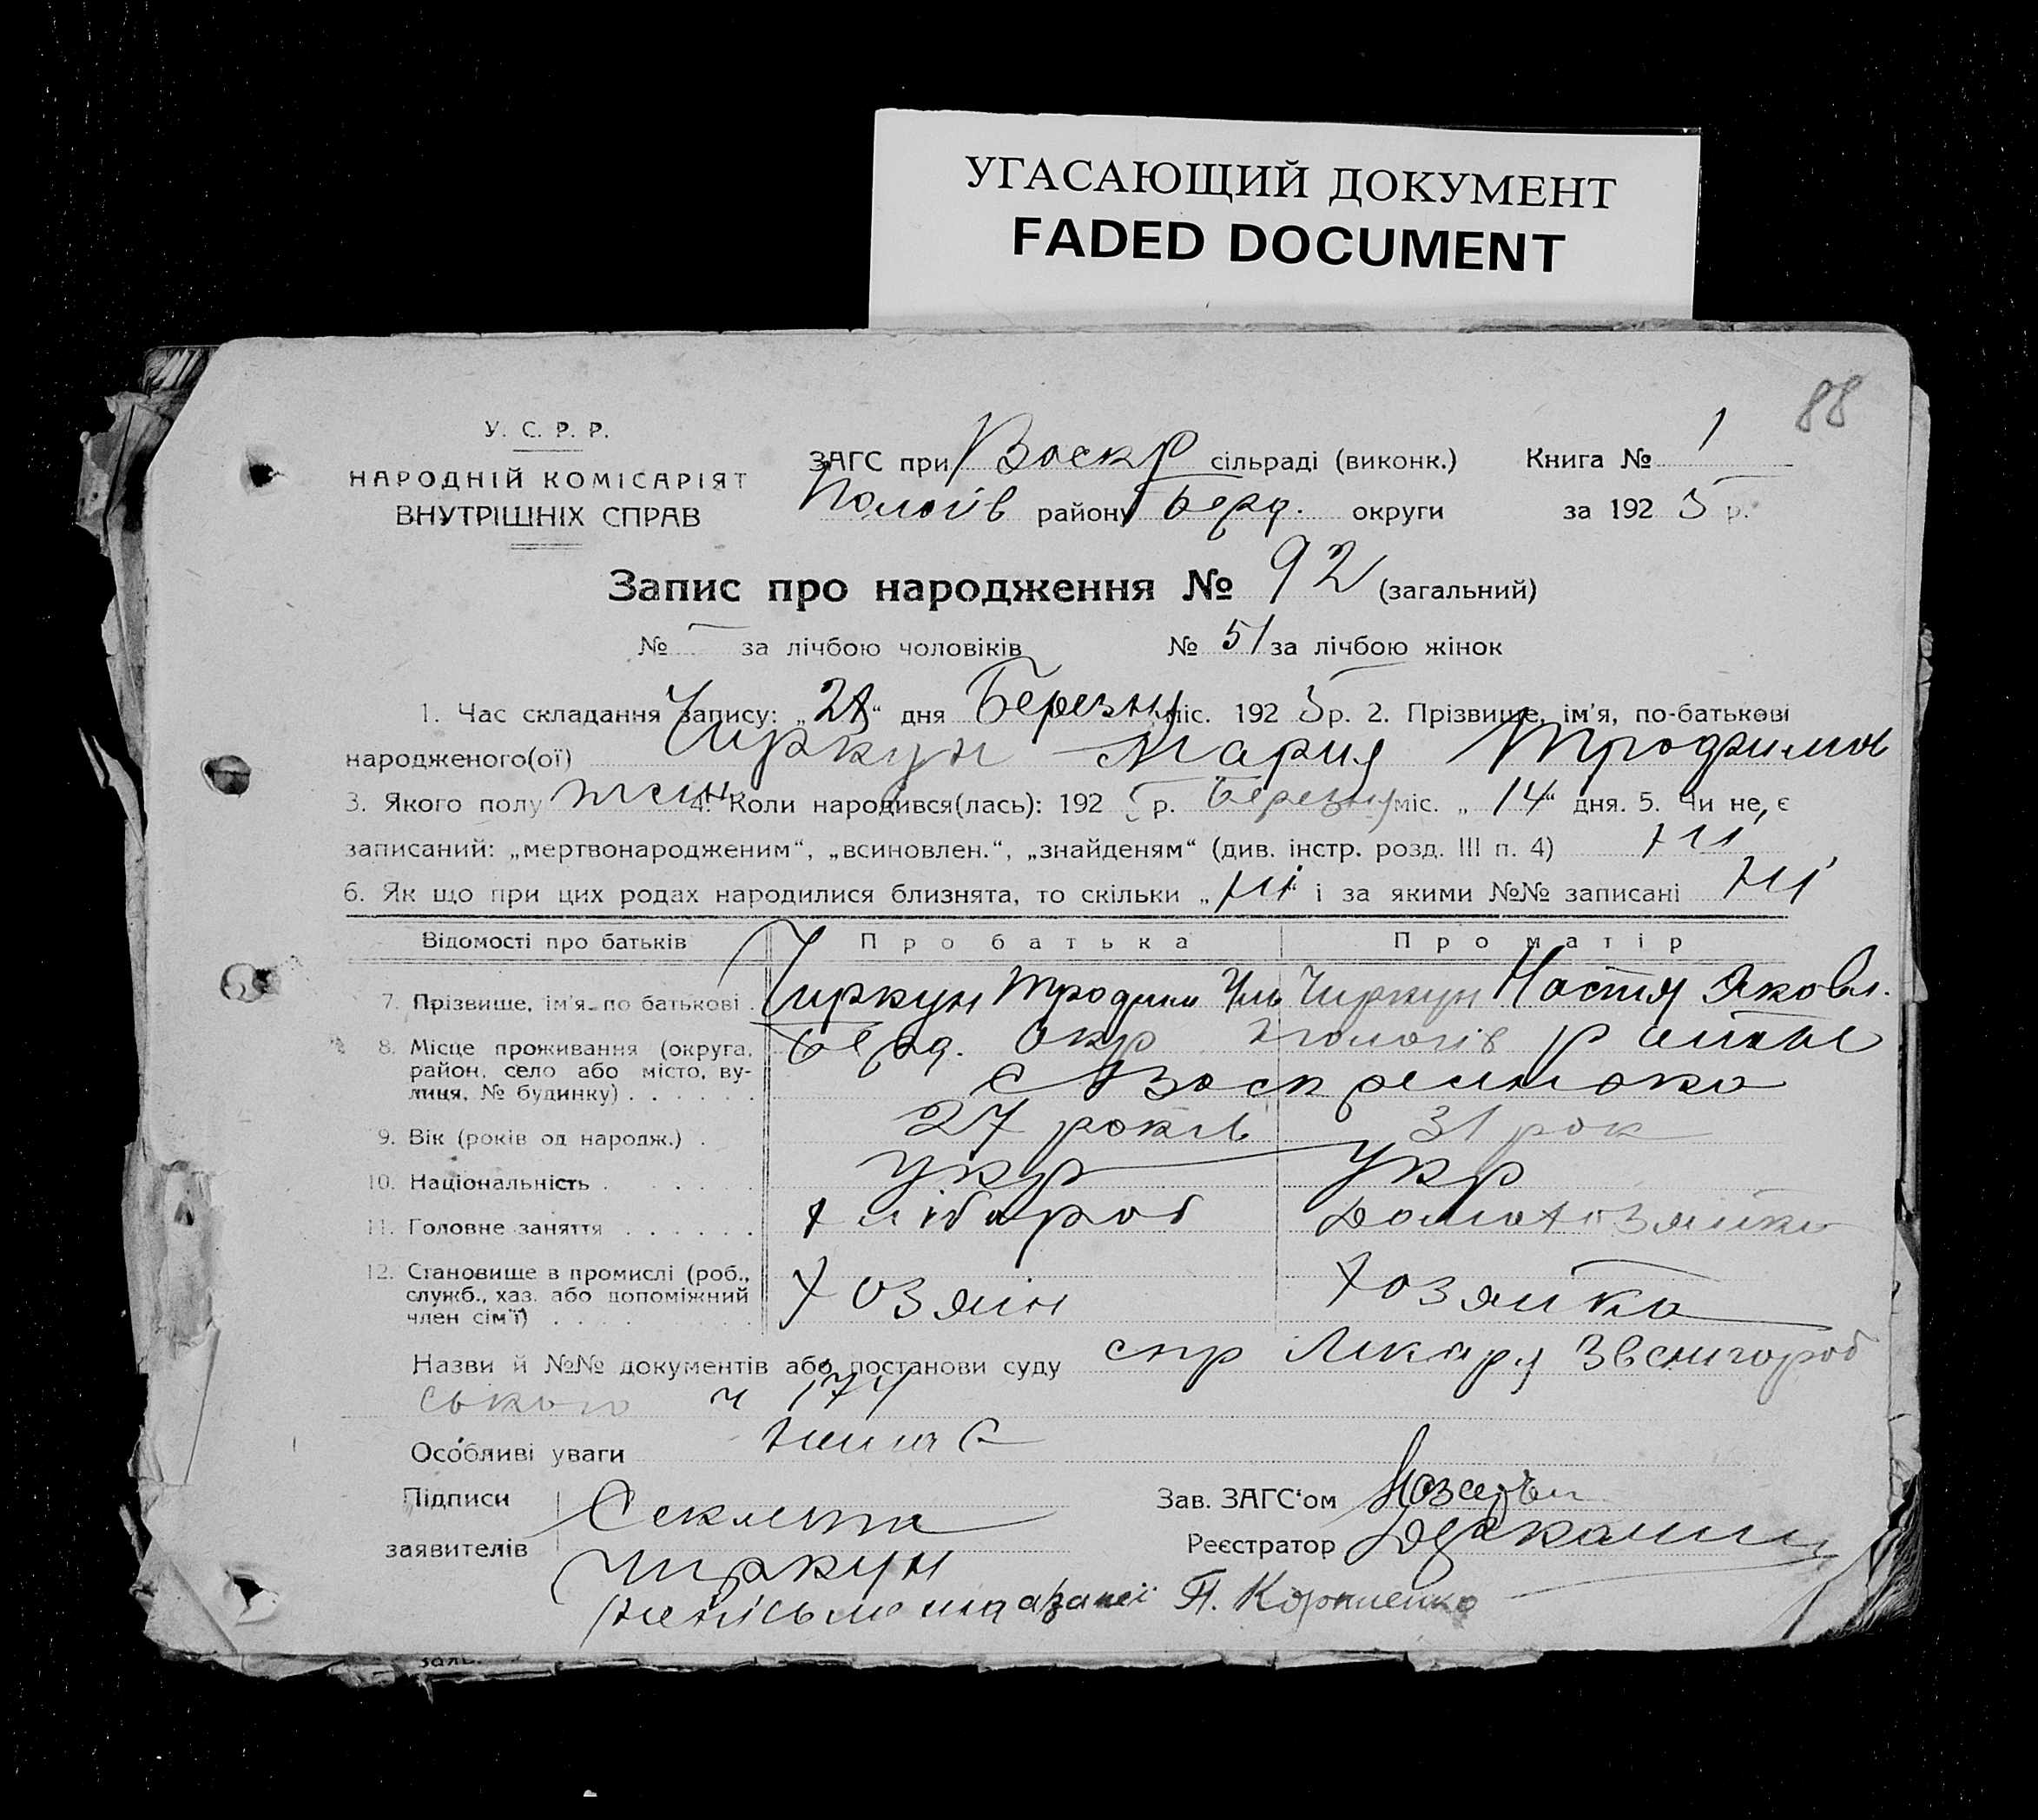 УГАСАЮЩИЙ ДОКУМЕНТ
FADED DOCUMENT
88
У. С. Р. Р.
НАРОДНІЙ КОМІСАРІЯТ
ВНУТРІШНІХ СПРАВ
ЗАГС при Воскр сільраді (виконк.) Книга № 1
Пологів району Берд. округи за 1925 р.
Запис про народження № 92 (загальний)
№ — за лічбою чоловіків № 51 за лічбою жінок
1. Час складання запису: „ “ дня Березня міс. 1925 р. 2. Прізвище, ім'я, по-батькові
народженого(ої) Чиркун Мария Трофимов
3. Якого полу жен 4. Коли народився(лась): 1925 р. березня міс. „14“ дня. 5. Чи не є
записаний: „мертвонародженим“, „всиновлен.“, „знайденям“ (див. інстр. розд. III п. 4) ні
6. Як що при цих родах народилися близнята, то скільки „ні“ і за якими №№ записані ні
Відомості про батьків Про батька Про матір
7. Прізвище, ім'я, по батькові Чиркун Трофим Чиркун Настя Яковл.
8. Місце проживання (округа, район, село або місто, ву- лиця, № будинку) Берд. Окр Пологів району
с Воскресенока
9. Вік (років од народж.) 27 років 31 рок
10. Національність укр укр
11. Головне заняття хлібороб Домохозяйка
12. Становище в промислі (роб., служб., хаз. або допоміжний член сім'ї) хозяін хозяйка
Назви й №№ документів або постанови суду спр Лікаря Звенигород
ського ч 174
Особливі уваги немає
Підписи Секлета Зав. ЗАГС'ом
заявителів Чиркун Реєстратор
П. Корниенко
заяв.